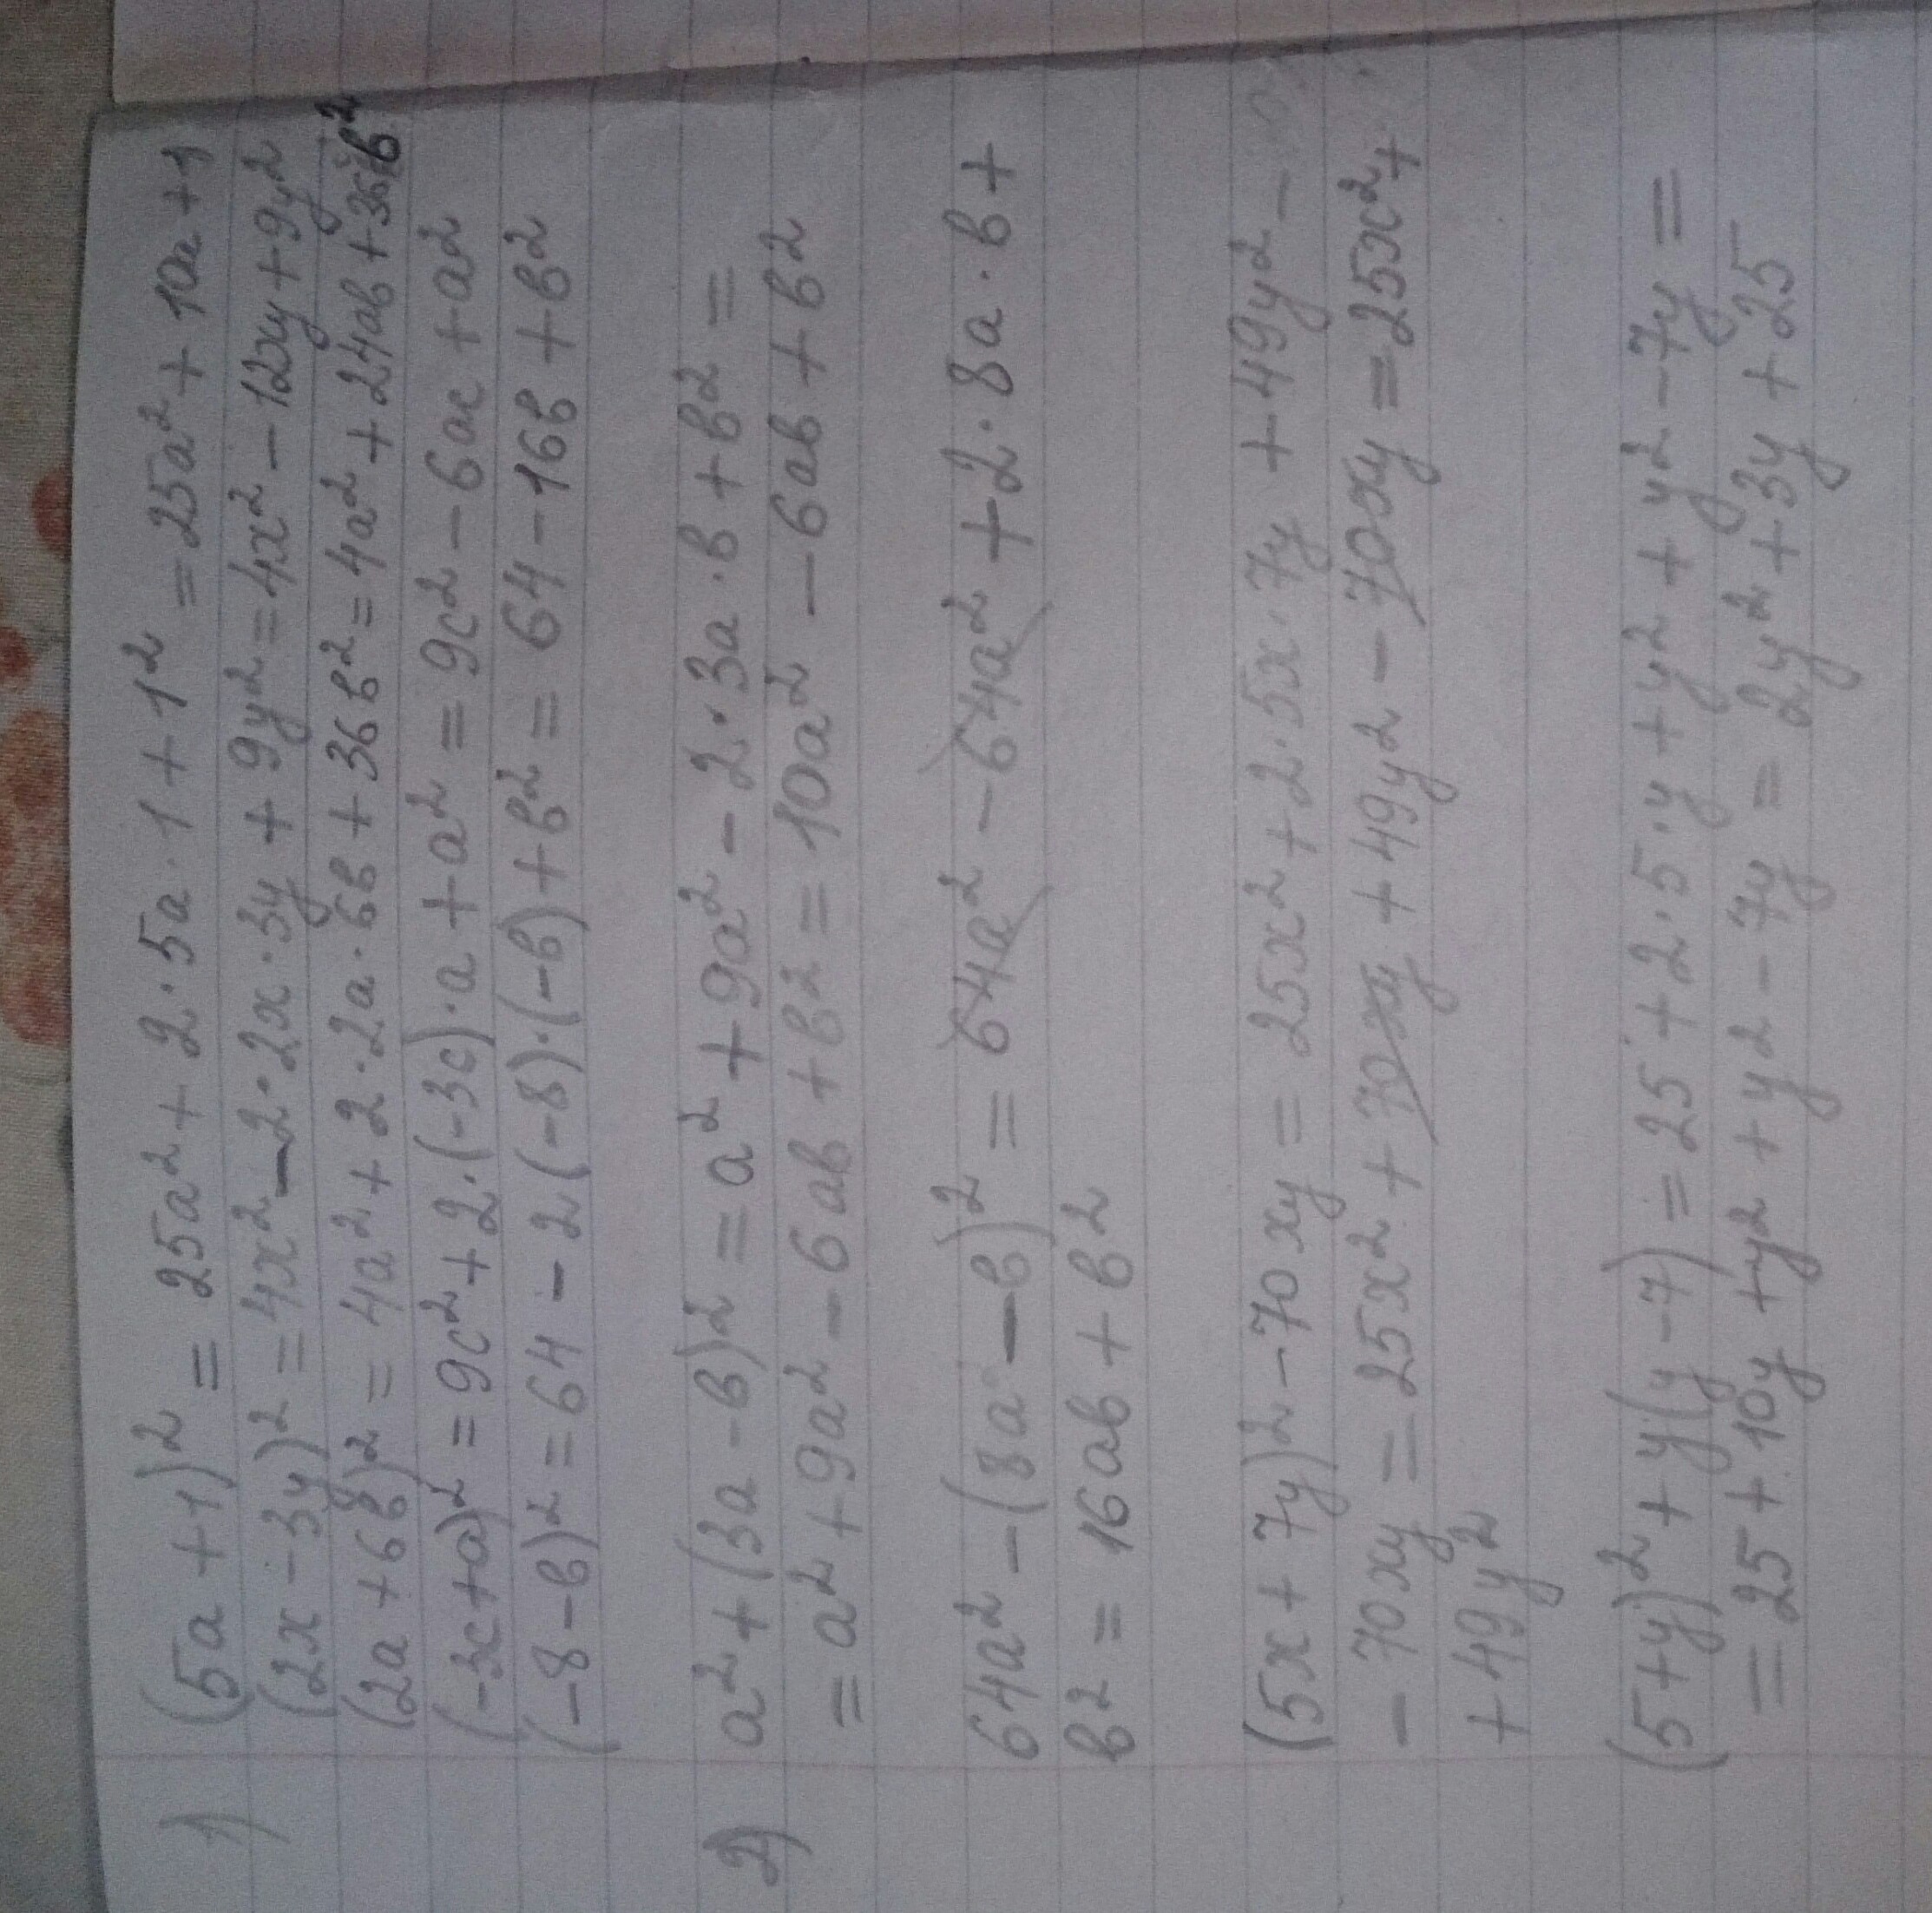 1) (5a+1)² = 25a² + 2·5a·1 + 1² = 25a² + 10a + 1
(2x-3y)² = 4x² - 2·2x·3y + 9y² = 4x² - 12xy + 9y²
(2a+6в)² = 4a² + 2·2a·6в + 36в² = 4a² + 24aв + 36в²
(-3c+a)² = 9c² + 2·(-3c)·a + a² = 9c² - 6ac + a²
(-8-в)² = 64 - 2(-8)·(-в) + в² = 64 - 16в + в²
2) a² + (3a-в)² = a² + 9a² - 2·3a·в + в² =
= a² + 9a² - 6aв + в² = 10a² - 6aв + в²
64a² - (8a-в)² = 64a² - 64a² + 2·8a·в +
в² = 16aв + в²
(5x+7y)² - 70xy = 25x² + 2·5x·7y + 49y² -
- 70xy = 25x² + 70xy + 49y² - 70xy = 25x² +
+ 49y²
(5+y)² + y(y-7) = 25 + 2·5·y + y² + y² - 7y =
= 25 + 10y + y² + y² - 7y = 2y² + 3y + 25